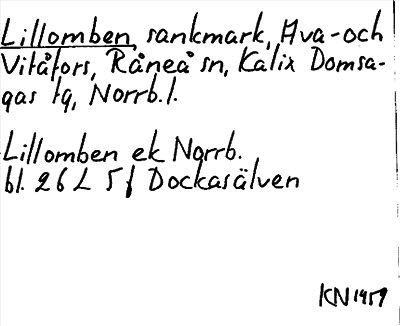 Lillomben, sankmark, Hva- och
Vitåfors, Råneå sn, Kalix Domsa-
gas tg, Norrb. l.
Lillomben ek Norrb.
bl. 26 L 5 f Dockasälven
KN 1959